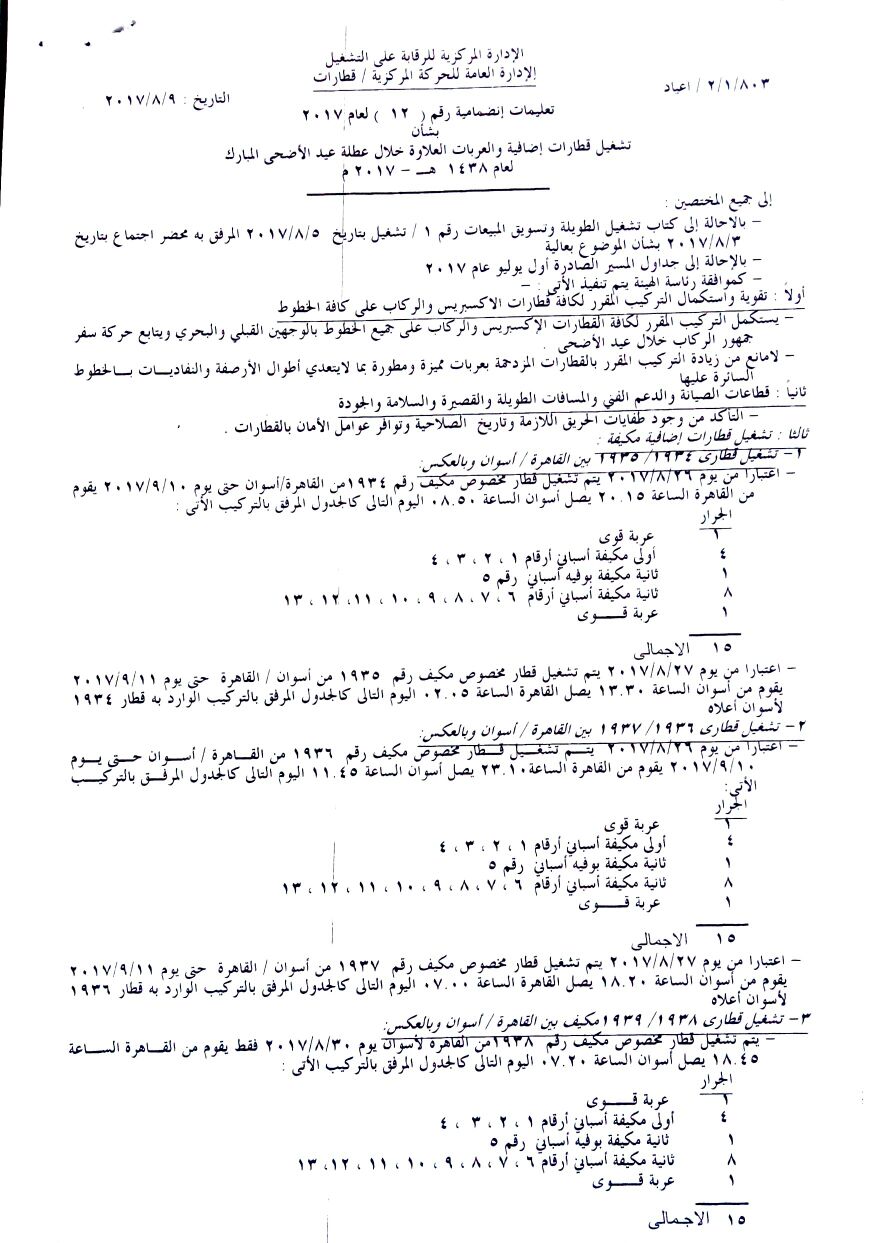 الإدارة المركزية للرقابة على التشغيل
الإدارة العامة للحركة المركزية / قطارات
٢/١/٨٠٣ / اعياد
التاريخ : ٢٠١٧/٨/٩
تعليمات إنضمامية رقم ( ١٢ ) لعام ٢٠١٧
بشأن
تشغيل قطارات إضافية والعربات العلاوة خلال عطلة عيد الأضحى المبارك
لعام ١٤٣٨ هـ – ٢٠١٧ م
إلى جميع المختصين :
– بالاحالة إلى كتاب تشغيل الطويلة وتسويق المبيعات رقم ١ / تشغيل بتاريخ ٢٠١٧/٨/٥ المرفق به محضر اجتماع بتاريخ
٢٠١٧/٨/٣ بشأن الموضوع بعالية
– بالإحالة إلى جداول المسير الصادرة أول يوليو عام ٢٠١٧
– كموافقة رئاسة الهيئة يتم تنفيذ الأتى : –
أولاً : تقوية واستكمال التركيب المقرر لكافة قطارات الاكسبريس والركاب على كافة الخطوط
– يستكمل التركيب المقرر لكافة القطارات الإكسبريس والركاب على جميع الخطوط بالوجهين القبلي والبحري ويتابع حركة سفر
جمهور الركاب خلال عيد الأضحى .
– لامانع من زيادة التركيب المقرر بالقطارات المزدحمة بعربات مميزة ومطورة بما لايتعدي أطوال الأرصفة والتفاديات بالخطوط
السائرة عليها
ثانياً : قطاعات الصيانة والدعم الفني والمسافات الطويلة والقصيرة والسلامة والجودة
– التأكد من وجود طفايات الحريق اللازمة وتاريخ الصلاحية وتوافر عوامل الأمان بالقطارات .
ثالثا : تشغيل قطارات إضافية مكيفة :
١– تشغيل قطارى ١٩٣٤/ ١٩٣٥ بين القاهرة / أسوان وبالعكس:
– اعتبارا من يوم ٢٠١٧/٨/٢٦ يتم تشغيل قطار مخصوص مكيف رقم ١٩٣٤من القاهرة/أسوان حتى يوم ٢٠١٧/٩/١٠ يقوم
من القاهرة الساعة ٢٠.١٥ يصل أسوان الساعة ٠٨.٥٠ اليوم التالى كالجدول المرفق بالتركيب الأتى :
الجرار
١ عربة قوى
٤ أولى مكيفة أسباني أرقام ١ ، ٢ ، ٣ ، ٤
١ ثانية مكيفة بوفيه أسباني رقم ٥
٨ ثانية مكيفة أسباني أرقام ٦ ، ٧ ، ٨ ، ٩ ، ١٠ ، ١١ ، ١٢ ، ١٣
١ عربة قــوى
١٥ الاجمالى
– اعتبارا من يوم ٢٠١٧/٨/٢٧ يتم تشغيل قطار مخصوص مكيف رقم ١٩٣٥ من أسوان / القاهرة حتى يوم ٢٠١٧/٩/١١
يقوم من أسوان الساعة ١٣.٣٠ يصل القاهرة الساعة ٠٢.٠٥ اليوم التالى كالجدول المرفق بالتركيب الوارد به قطار ١٩٣٤
لأسوان أعلاه
٢– تشغيل قطارى ١٩٣٦/ ١٩٣٧ بين القاهرة / أسوان وبالعكس:
– اعتبارا من يوم ٢٠١٧/٨/٢٦ يتم تشغيل قطار مخصوص مكيف رقم ١٩٣٦ من القاهرة / أسوان حتى يوم
٢٠١٧/٩/١٠ يقوم من القاهرة الساعة٢٣.١٠ يصل أسوان الساعة ١١.٤٥ اليوم التالى كالجدول المرفق بالتركيب
الأتى:
الجرار
١ عربة قوى
٤ أولى مكيفة أسباني أرقام ١ ، ٢ ، ٣ ، ٤
١ ثانية مكيفة بوفيه أسباني رقم ٥
٨ ثانية مكيفة أسباني أرقام ٦ ، ٧ ، ٨ ، ٩ ، ١٠ ، ١١ ، ١٢ ، ١٣
١ عربة قــوى
١٥ الاجمالى
– اعتبارا من يوم ٢٠١٧/٨/٢٧ يتم تشغيل قطار مخصوص مكيف رقم ١٩٣٧ من أسوان / القاهرة حتى يوم ٢٠١٧/٩/١١
يقوم من أسوان الساعة ١٨.٢٠ يصل القاهرة الساعة ٠٧.٠٠ اليوم التالى كالجدول المرفق بالتركيب الوارد به قطار ١٩٣٦
لأسوان أعلاه
٣– تشغيل قطارى ١٩٣٨/ ١٩٣٩مكيف بين القاهرة / أسوان وبالعكس:
– يتم تشغيل قطار مخصوص مكيف رقم ١٩٣٨من القاهرة لأسوان يوم ٢٠١٧/٨/٣٠ فقط يقوم من القاهرة الساعة
١٨.٤٥ يصل أسوان الساعة ٠٧.٢٠ اليوم التالى كالجدول المرفق بالتركيب الأتى :
الجرار
١ عربة قــوى
٤ أولى مكيفة أسباني أرقام ١ ، ٢ ، ٣ ، ٤
١ ثانية مكيفة بوفيه أسباني رقم ٥
٨ ثانية مكيفة أسباني أرقام ٦ ، ٧ ، ٨ ، ٩ ، ١٠ ، ١١ ، ١٢، ١٣
١ عربة قــوى
١٥ الاجمالى